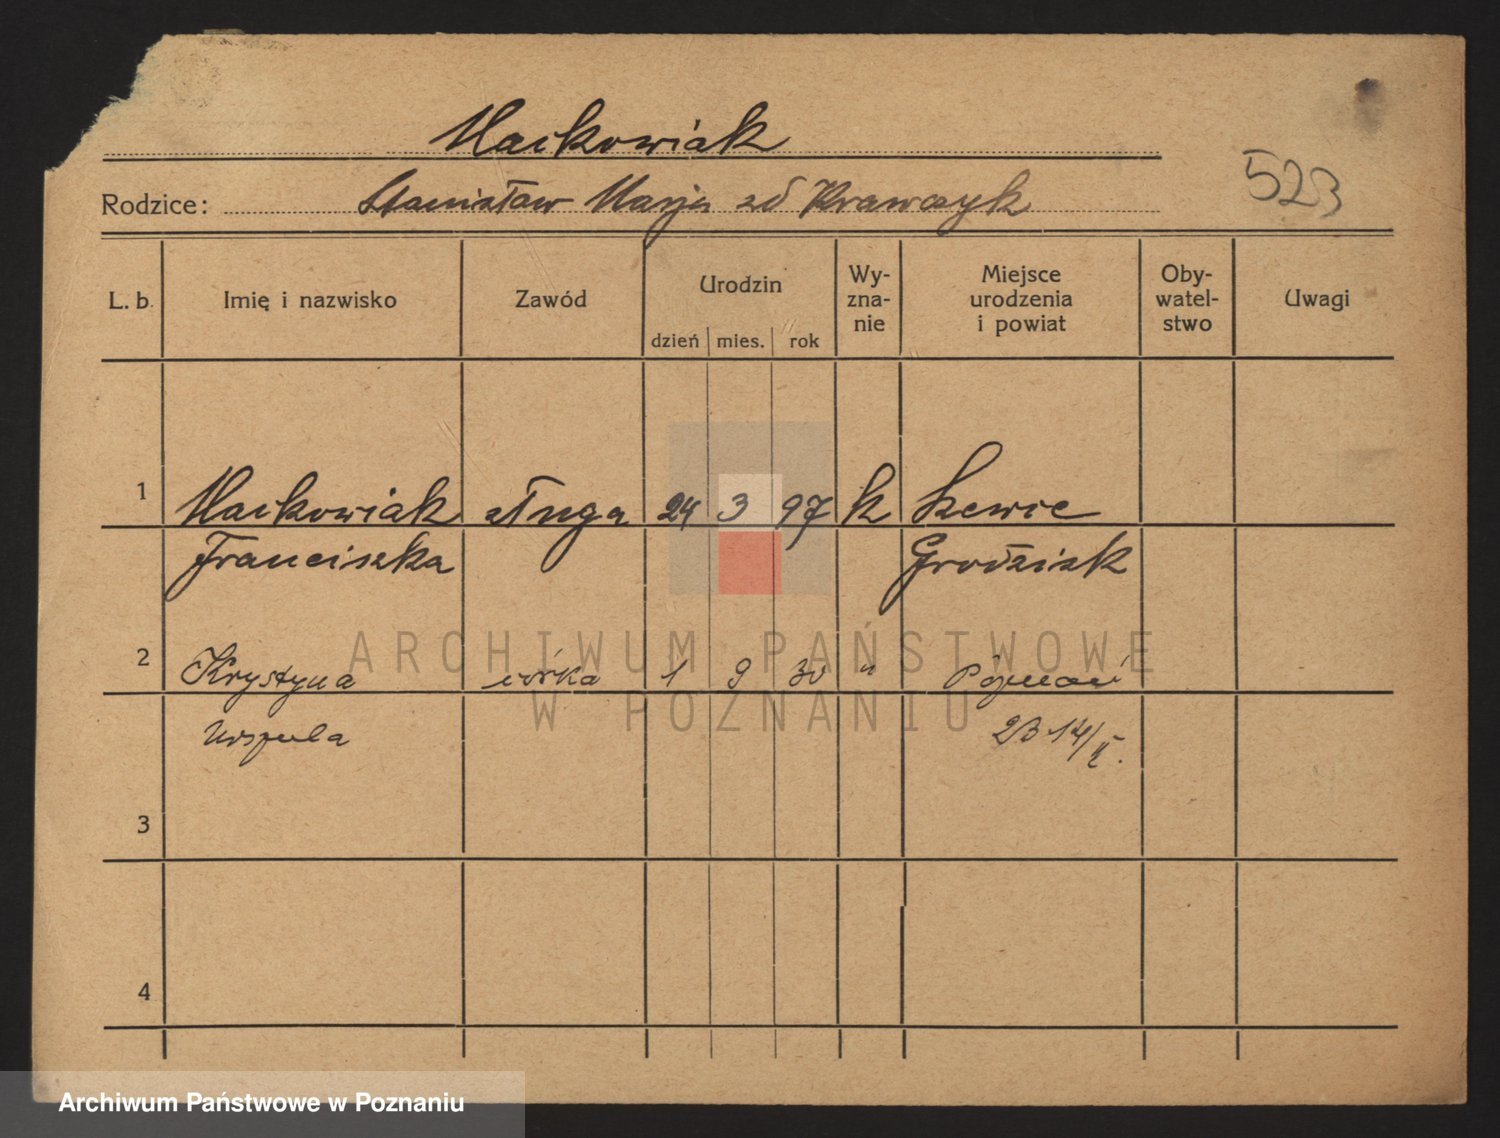 Mackowiak
Rodzice: Stanisław Marja zd Krawczyk
523
L. b. Imię i nazwisko Zawód Urodzin Wy-zna-nie Miejsce urodzenia i powiat Oby-watel-stwo Uwagi
dzień mies. rok
1 Mackowiak sługa 24 3 97 k Szewce
Franciszka Grodzisk
2 Krystyna córka 1 9 30 " Poznań
Urszula 23 14/II.
3
4
ARCHIWUM PAŃSTWOWE
W POZNANIU
Archiwum Państwowe w Poznaniu